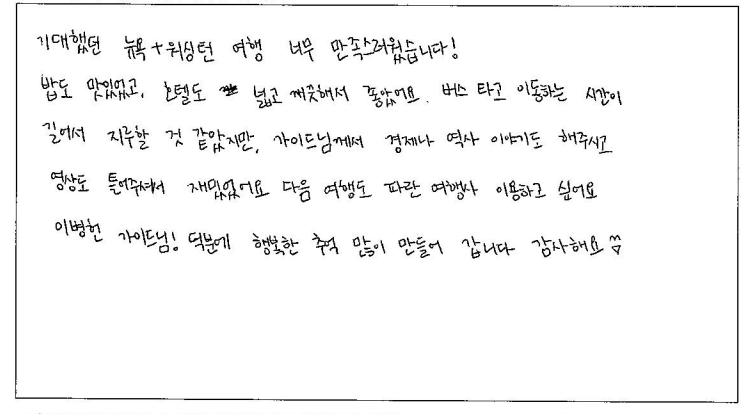 기대했던 뉴욕+워싱턴 여행 너무 만족스러웠습니다!
밥도 맛있었고, 호텔도 넓고 깨끗해서 좋았어요. 버스 타고 이동하는 시간이
길어서 지루할 것 같았지만, 가이드님께서 경제나 역사 이야기도 해주시고
영상도 틀어주셔서 재밌었어요 다음 여행도 파란 여행사 이용하고 싶어요
이병헌 가이드님! 덕분에 행복한 추억 많이 만들어 갑니다 감사해요 ^^